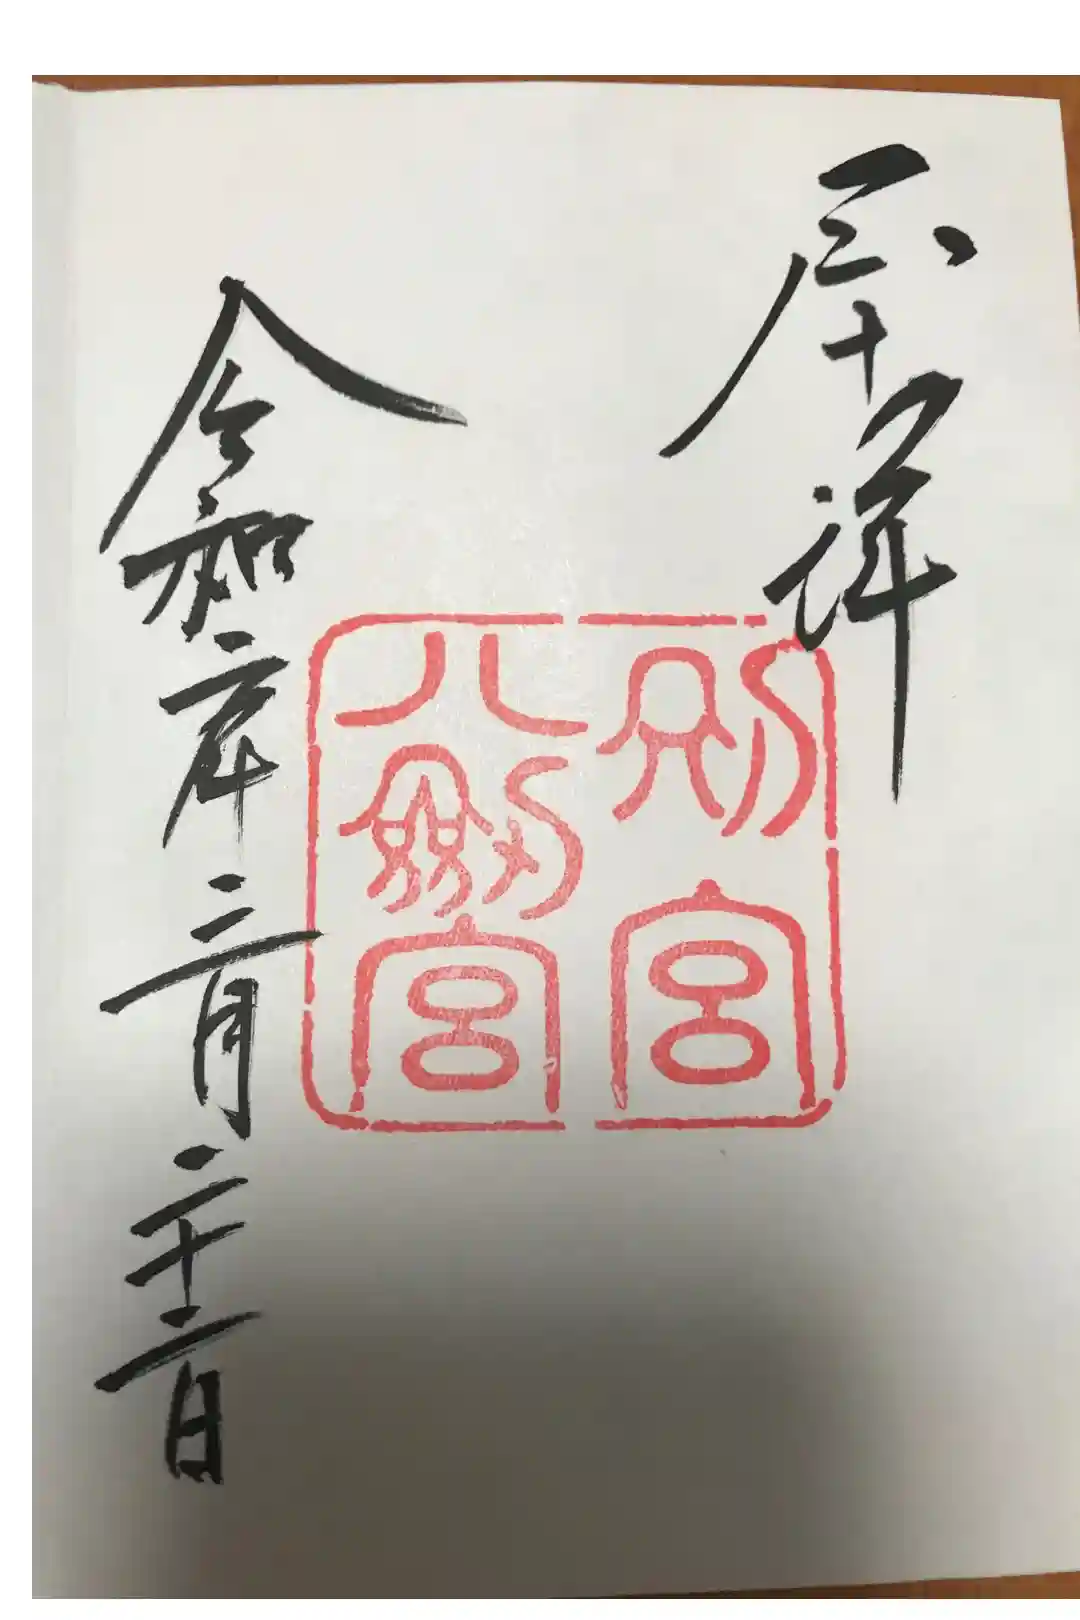 奉拝
別宮
八剱宮
令和六年二月二十二日